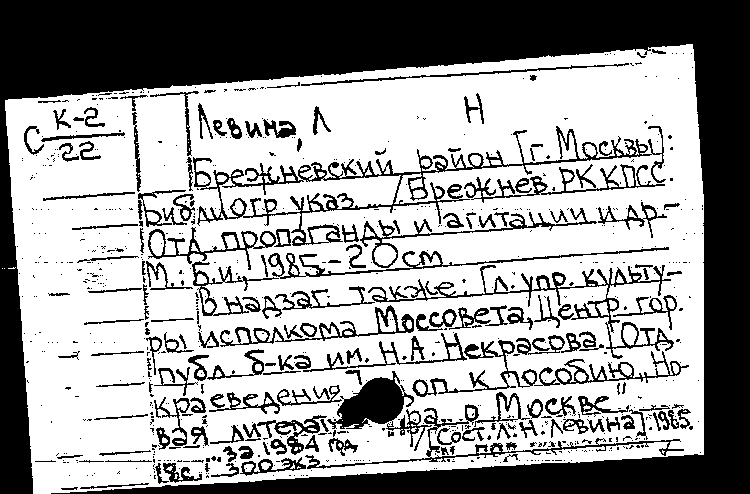 К-2
С
22
Левина, Л Н
Брежневский район [г. Москвы]:
Библиогр указ ... / Брежнев. РК КПСС.
Отд. пропаганды и агитации и др.-
М.: Б.и., 1985.-20см.
В надзаг. также: Гл. упр. культу-
ры исполкома Моссовета, Центр. гор.
публ. б-ка им. Н.А. Некрасова. [Отд.
краеведения]. доп. к пособию „Но-
вая литература о Москве"
/[Сост. Л.Н. Левина]. 1985.
"за 1984 год
18с. 300 экз.